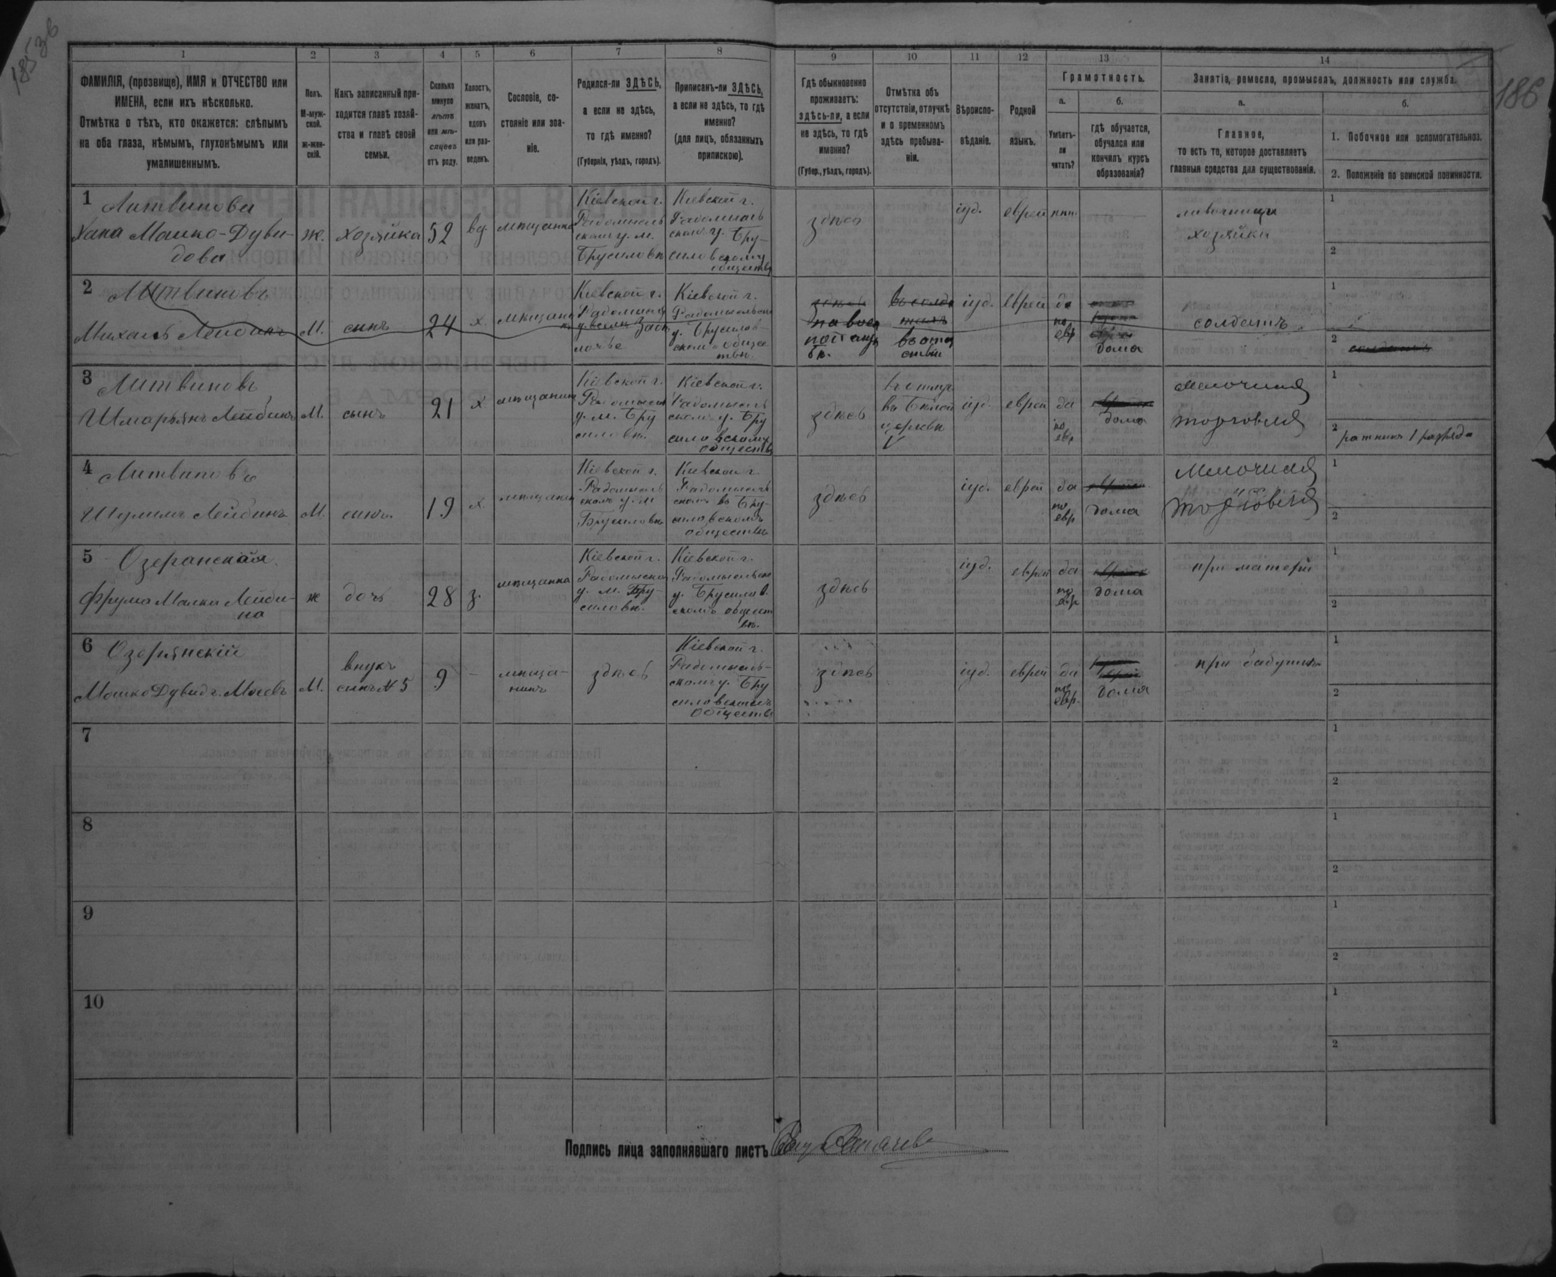 185 об
186
1 2 3 4 5 6 7 8 9 10 11 12 13 14
ФАМИЛІЯ, (прозвище), ИМЯ и ОТЧЕСТВО или
ИМЕНА, если ихъ нѣсколько.
Отмѣтка о тѣхъ, кто окажется: слѣпымъ
на оба глаза, нѣмымъ, глухонѣмымъ или
умалишеннымъ.
Полъ.
М-муж-
ской.
ж-жен-
скій.
Какъ записанный при-
ходится главѣ хозяй-
ства и главѣ своей
семьи.
Сколько
минуло
лѣтъ
или мѣ-
сяцевъ
отъ роду.
Холостъ,
женатъ,
вдовъ
или раз-
веденъ.
Сословіе, со-
стояніе или зва-
ніе.
Родился-ли ЗДѢСЬ,
а если не здѣсь,
то гдѣ именно?
(Губернія, уѣздъ, городъ).
Приписанъ-ли ЗДѢСЬ,
а если не здѣсь, то гдѣ
именно?
(для лицъ, обязанныхъ
припискою).
Гдѣ обыкновенно
проживаетъ:
здѣсь-ли, а если
не здѣсь, то гдѣ
именно?
(Губер., уѣздъ, городъ).
Отмѣтка объ
отсутствіи, отлучкѣ
и о временномъ
здѣсь пребыва-
ніи.
Вѣроиспо-
вѣданіе.
Родной
языкъ.
Грамотность.
а.
Умѣетъ-
ли
читать?
б.
гдѣ обучается,
обучался или
кончилъ курсъ
образованія?
Занятіе, ремесло, промыселъ, должность или служба.
а.
Главное,
то есть то, которое доставляетъ
главныя средства для существованія.
б.
1. Побочное или вспомогательное.
2. Положеніе по воинской повинности.
1
Литвинова
Хана Мошко-Дуви-
дова
ж.
хозяйка
52
вд
мѣщанка
Кіевской г.
Радомысль
скому.м.
Брусиловѣ
Кіевской г.
Радомысль
ском у. Бру-
силовскому
обществу
здѣсь
іуд.
еврей
хозяйка
1
2
2
Литвиновъ
Михаилъ Лейбинъ
М.
сынъ
24
х
мѣщанинъ
Кіевской г.
Кіевской г.
Радомысльском
у. Брусилов
ском общес
твѣ.
іуд.
еврей
да
по
евр
дома
солдатъ
1
2
3
Литвиновъ
Шмарьянъ Лейбинъ
М.
сынъ
21
х
мѣщанинъ
Кіевской г.
Радомысл
у. м. Бру
силовѣ.
Кіевской г.
Радомысль
ском у. Бру
силовскому
обществѣ
здѣсь
въ Бѣлой
церкви
іуд.
еврей
да
по
евр.
дома
мелочная
торговля
1
2
ратникъ 1 разряда
4
Литвиновъ
Шулимъ Лейбинъ
М
сынъ
19
х
мѣщанинъ
Кіевской г.
Радомысль
ском у. м
Брусиловѣ
Кіевской г.
Радомысль
ском въ Бру
силовскомъ
обществѣ
здѣсь
іуд.
еврей
да
по
евр
дома
мелочная
торговля
1
2
5
Озеранская
Фрума Малка Лейби-
на
ж
дочь
28
з.
мѣщанка
Кіевской г.
Радомысл
у. м. Бру
силовѣ.
Кіевской г.
Радомысльском
у. Брусилов
скомъ общест
вѣ.
здѣсь
іуд.
еврей
да
по
евр
дома
при матери
1
2
6
Озерянскій
Мошко Дувидъ Моевъ
М.
внукъ
сынъ № 5
9
-
мѣща-
нинъ
здѣсь
Кіевской г.
Радомысль-
ском у. Бру
силовскомъ
обществѣ
здѣсь
іуд.
еврей
да
по
евр.
дома
при бабушкѣ
1
2
7
1
2
8
1
2
9
1
2
10
1
2
Подпись лица заполнявшаго листъ